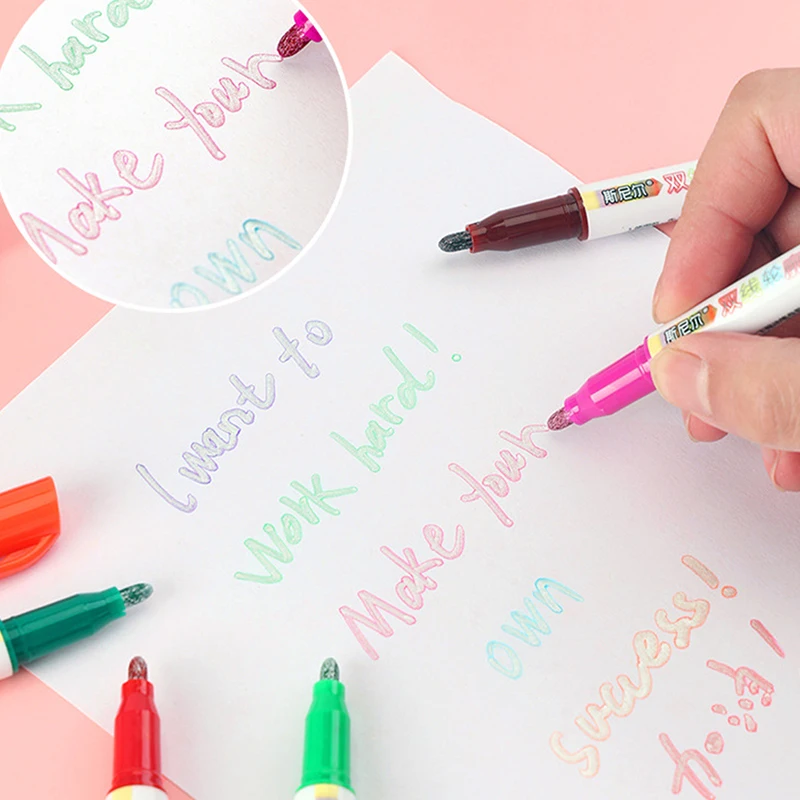 k hard
Make your
own
斯尼尔 双
斯尼尔 双线轮
I want to
Work hard!
Make your
own
success!
加油!